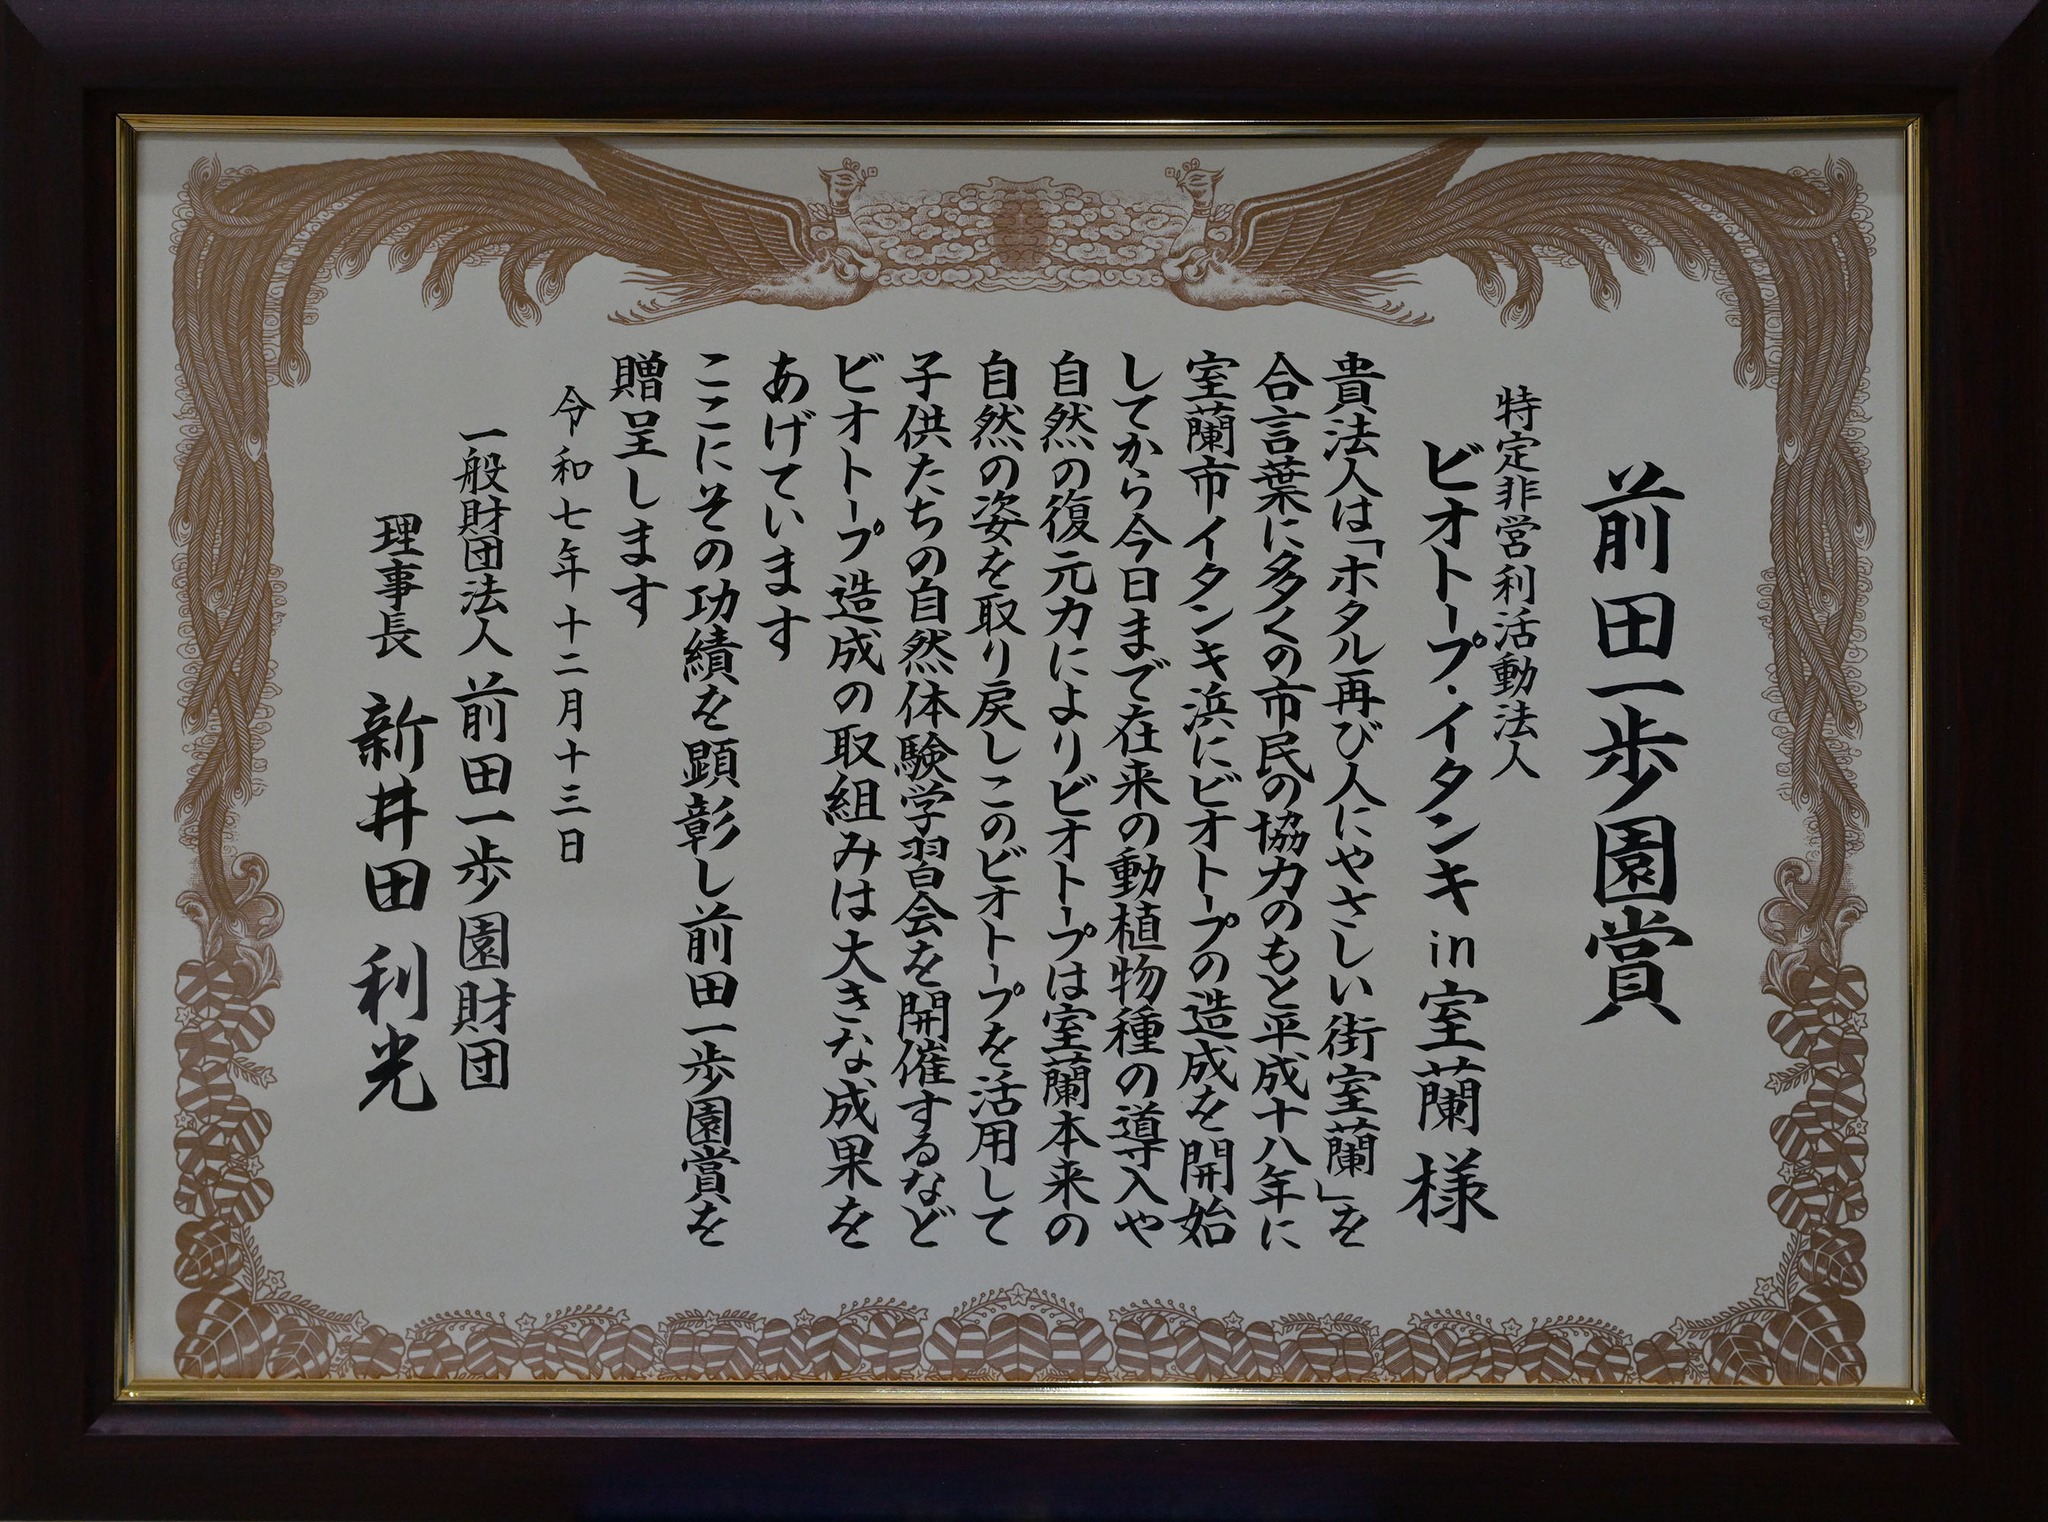 前田一歩園賞
特定非営利活動法人
ビオトープ・イタンキin室蘭 様
貴法人は「ホタル再び人にやさしい街室蘭」を
合言葉に多くの市民の協力のもと平成十八年に
室蘭市イタンキ浜にビオトープの造成を開始
してから今日まで在来の動植物種の導入や
自然の復元力によりビオトープは室蘭本来の
自然の姿を取り戻しこのビオトープを活用して
子供たちの自然体験学習会を開催するなど
ビオトープ造成の取組みは大きな成果を
あげています
ここにその功績を顕彰し前田一歩園賞を
贈呈します
令和七年十二月十三日
一般財団法人 前田一歩園財団
理事長 新井田 利光